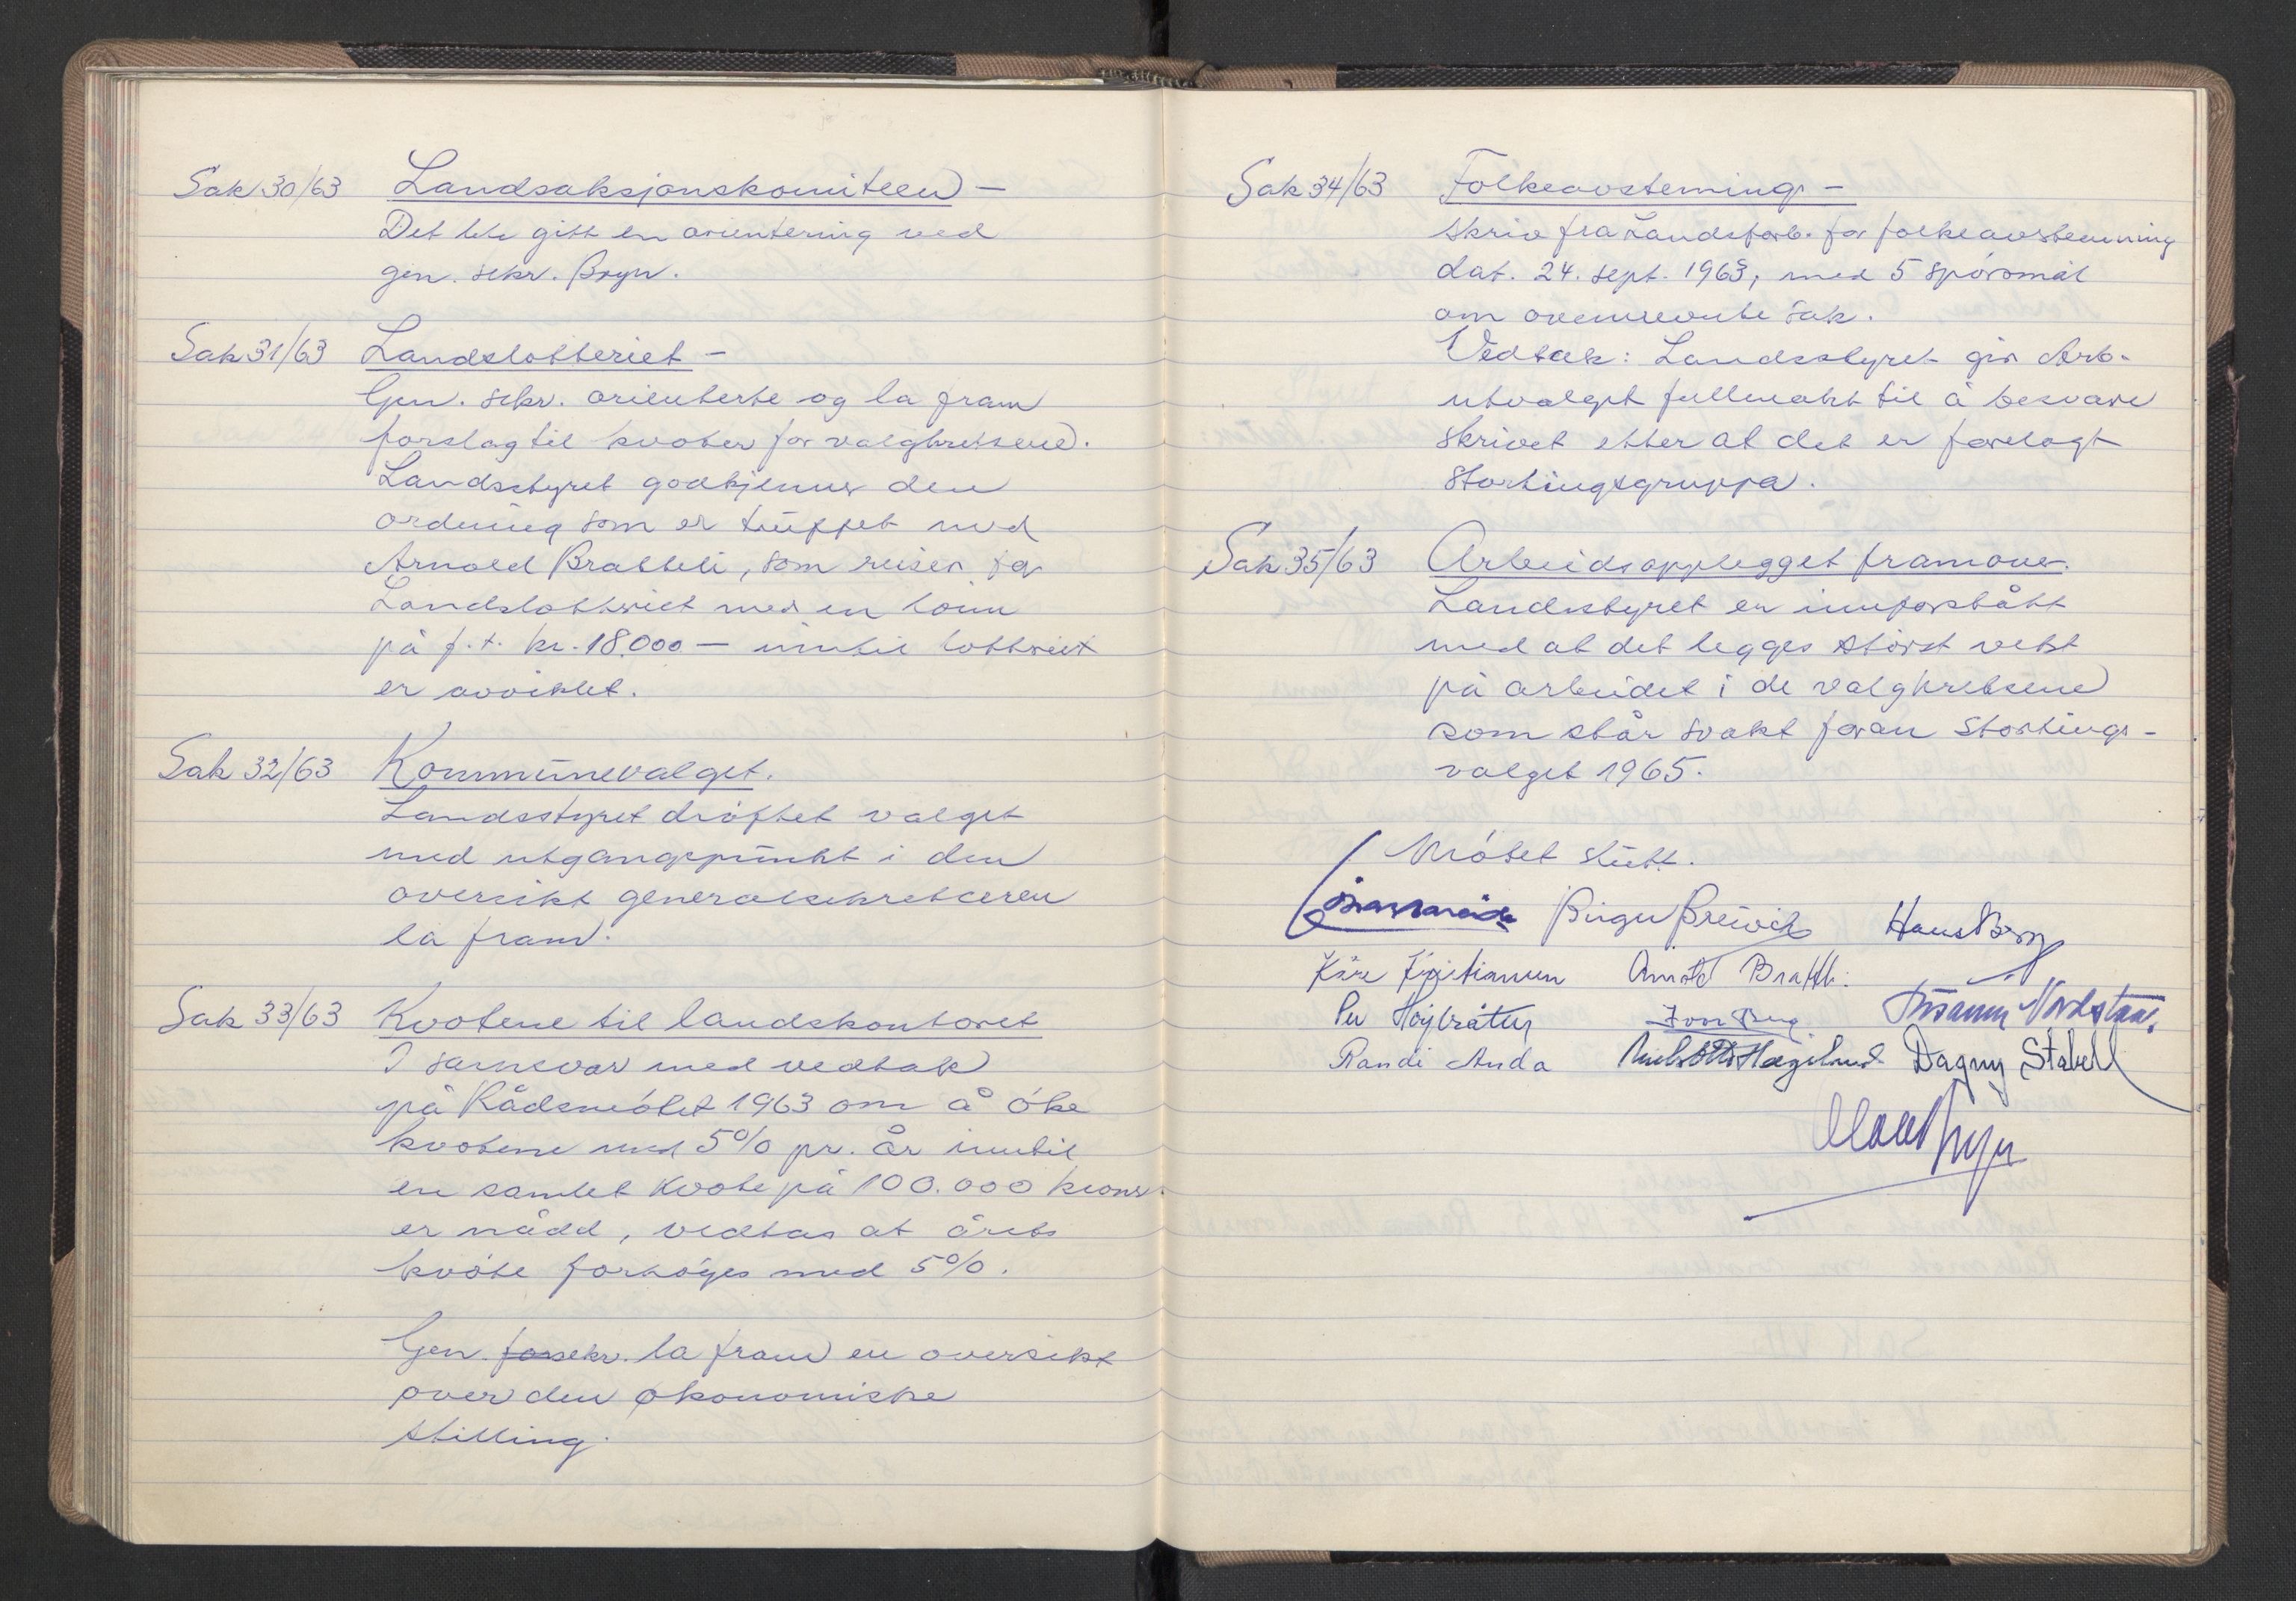 Sak 30/63 Landsaksjonskomiteen -
Det ble gitt en orientering ved
gen. sekr. Bryn.
Sak 31/63 Landslotteriet -
Gen. sekr. orienterte og la fram
forslag til kvoter for valgkretsene.
Landsstyret godkjenner den
ordning som er truffet med
Arnold Bratteli, som reiser for
Landslotteriet med en lönn
på f.t. kr. 18.000 - inntil lotteriet
er avviklet.
Sak 32/63 Kommunevalget.
Landsstyret dröftet valget
med utgangspunkt i den
oversikt generalsekretæren
la fram.
Sak 33/63 Kvotene til landskontoret
I samsvar med vedtak
på Rådsmötet 1963 om å öke
kvotene med 5% pr. år inntil
en samlet kvote på 100.000 kroner
er nådd, vedtas at årets
kvote forhöges med 5%.
Gen. sekr. la fram en oversikt
over den økonomiske
stilling.
Sak 34/63 Folkeavstemning -
Skriv fra Landsforb. for folkeavstemning
dat. 24. sept. 1963, med 5 spörsmål
om ovennevnte sak.
Vedtak: Landsstyret gir Arb.
utvalget fullmakt til å besvare
skrivet etter at det er forelagt
Stortingsgruppa.
Sak 35/63 Arbeidsopplegget framover.
Landsstyret er innforstått
med at det legges störst vekt
på arbeidet i de valgkretsene
som står svakt foran Stortings-
valget 1965.
Mötet slutt.
Birger Breivik Hans Berg
Kåre Kristiansen Arnold Bratteli
Per Höybråten Ivar Berg Nordstrand
Randi Anda Niels Otto Hægeland Dagny Stabell
Bryn